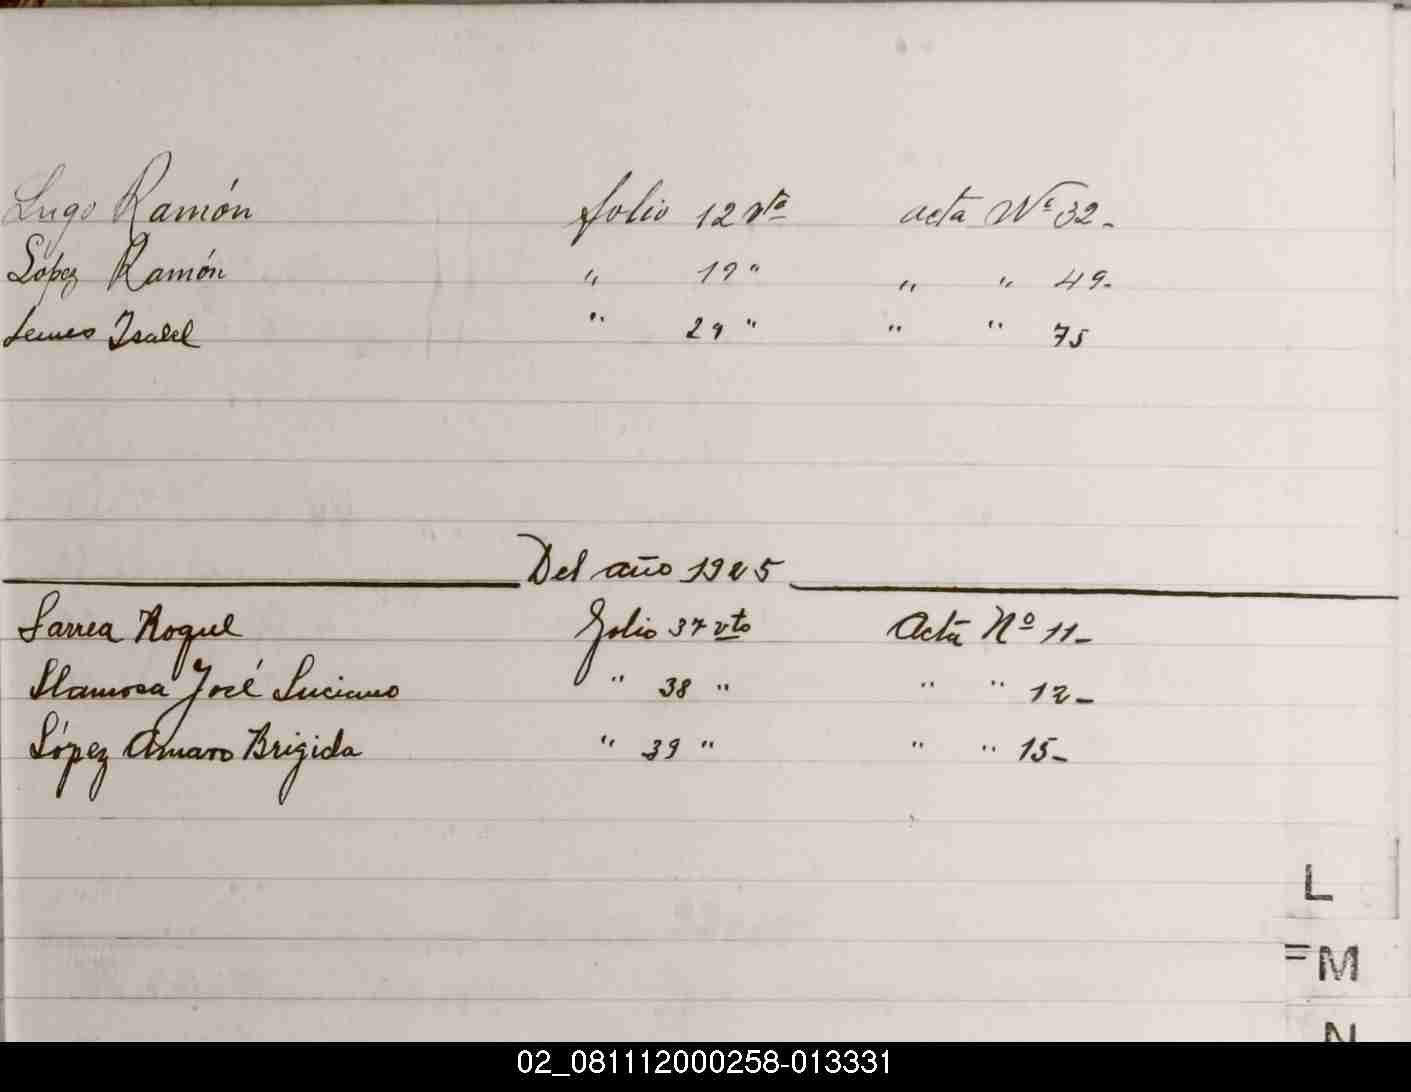 Lugo Ramón folio 12 vta acta Nº 32-
López Ramón " 19 " " " 49-
Lemes Isabel " 29 " " " 75
Del año 1925
Larrea Roque folio 37 vto Acta Nº 11-
Llamosa José Luciano " 38 " " " 12-
López Amaro Brigida " 39 " " " 15-
L
=M
N
02_081112000258-013331